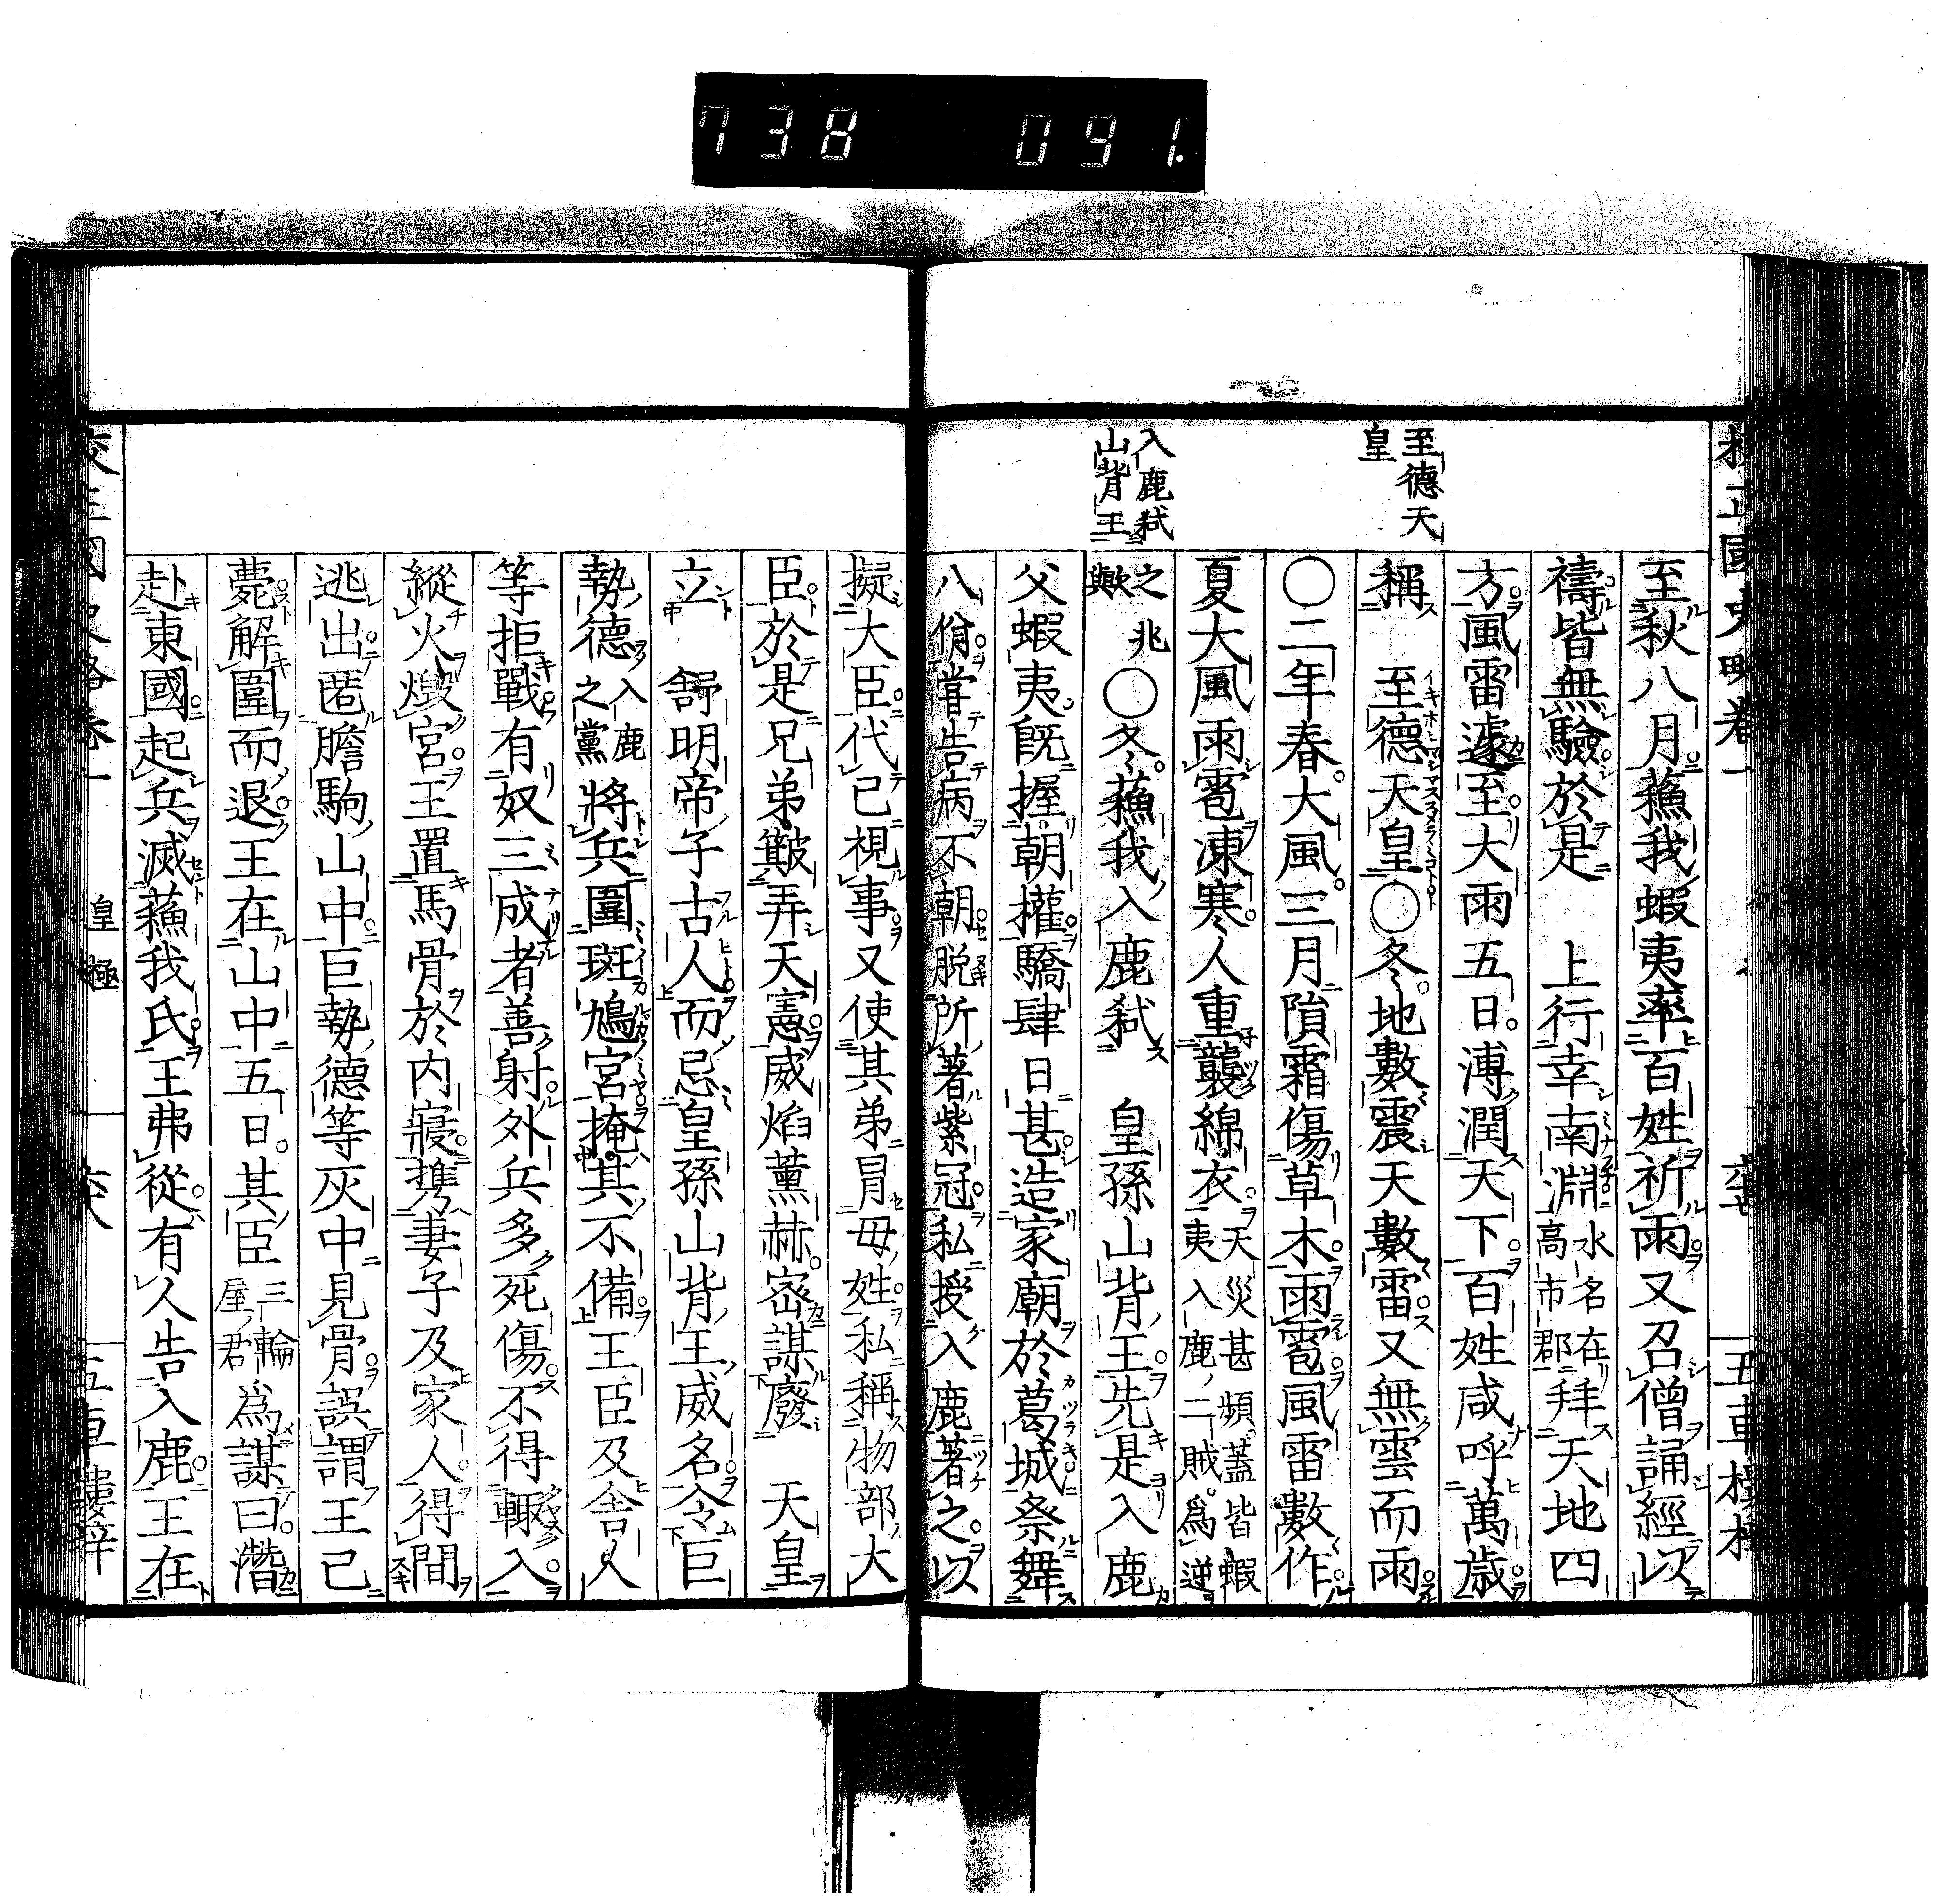 738 091.
至德天
皇
入鹿弑
山背王
至秋八月蘓我蝦夷率百姓祈雨又召僧誦經以
禱皆無驗於是　上行幸南淵水名在高市郡拜天地四
方風雷遽至大雨五日溥潤天下百姓咸呼萬歲
稱　至德天皇〇冬地數震天數雷又無雲而雨
〇二年春大風三月隕霜傷草木雨雹風雷數作
夏大風雨雹凍寒人重襲綿衣天災甚頻蓋皆蝦夷入鹿二賊爲逆
之兆歟〇冬蘓我入鹿弑　皇孫山背王先是入鹿
父蝦夷既握朝權驕肆日甚造家廟於葛城祭舞
八佾嘗告病不朝脱所著紫冠私授入鹿著之以
擬大臣代己視事又使其弟冒母姓私稱物部大
臣於是兄弟皾弄天憲威焰薰赫密謀廢　天皇
立　舒明帝子古人而忌皇孫山背王威名令巨
勢德入鹿之黨將兵圍斑鳩宮掩其不備王臣及舍人
等拒戰有奴三成者善射外兵多死傷不得輙入
縱火燬宮王置馬骨於内寢携妻子及家人得間
逃出匿膽駒山中巨勢德等灰中見骨誤謂王已
薨解圍而退王在山中五日其臣三輪屋君爲謀曰潛
赴東國起兵滅蘓我氏王弗從有人告入鹿王在
皇極